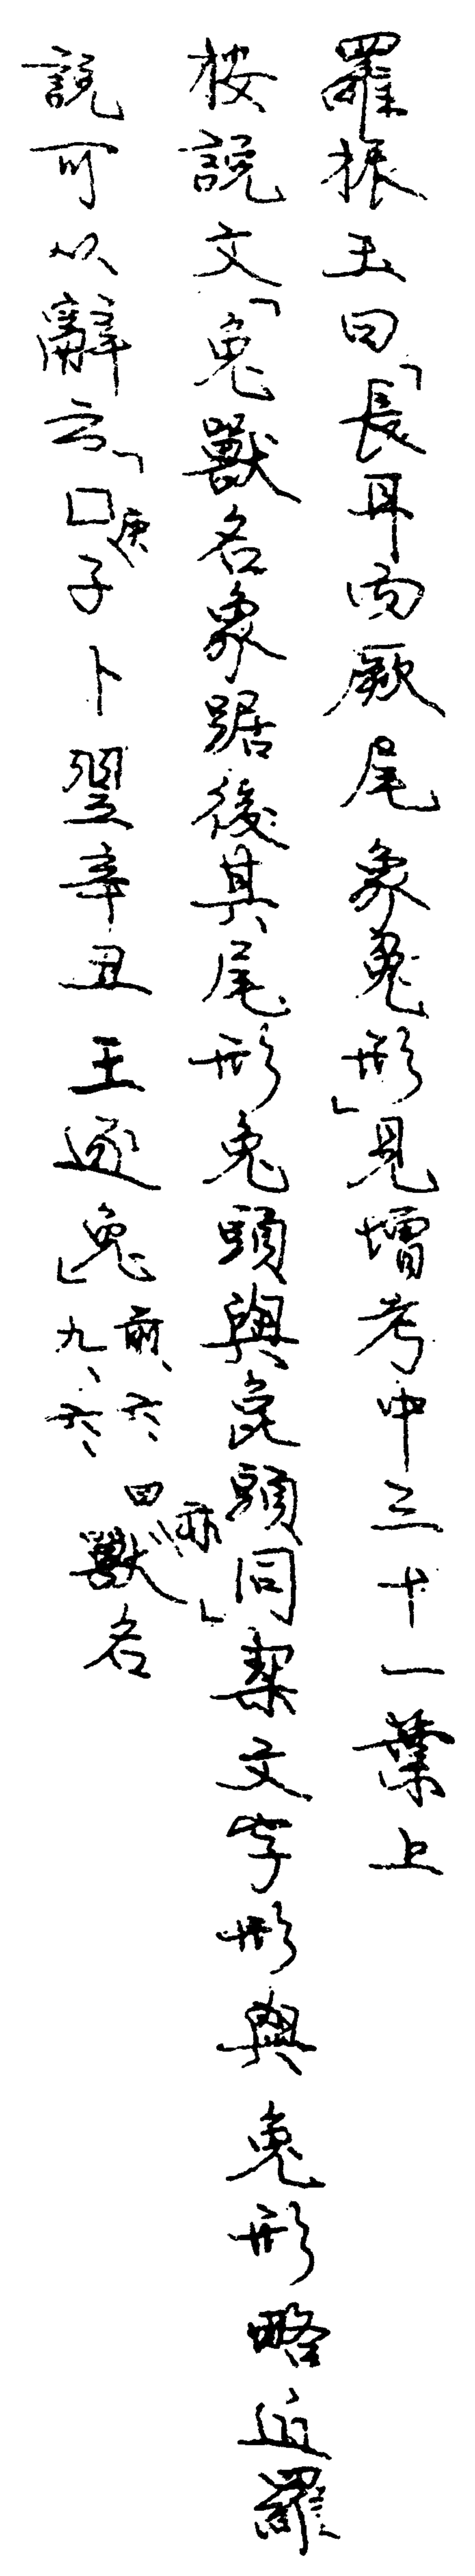 羅振玉曰「長耳而厥尾象兔形」見增考中三十一葉上
按說文「兔獸名象踞後其尾形兔頭與㲋頭同」栔文字形與兔形略近羅
說可从辭云「囗庚子卜翌辛丑王逐兔」前六四九六亦獸名